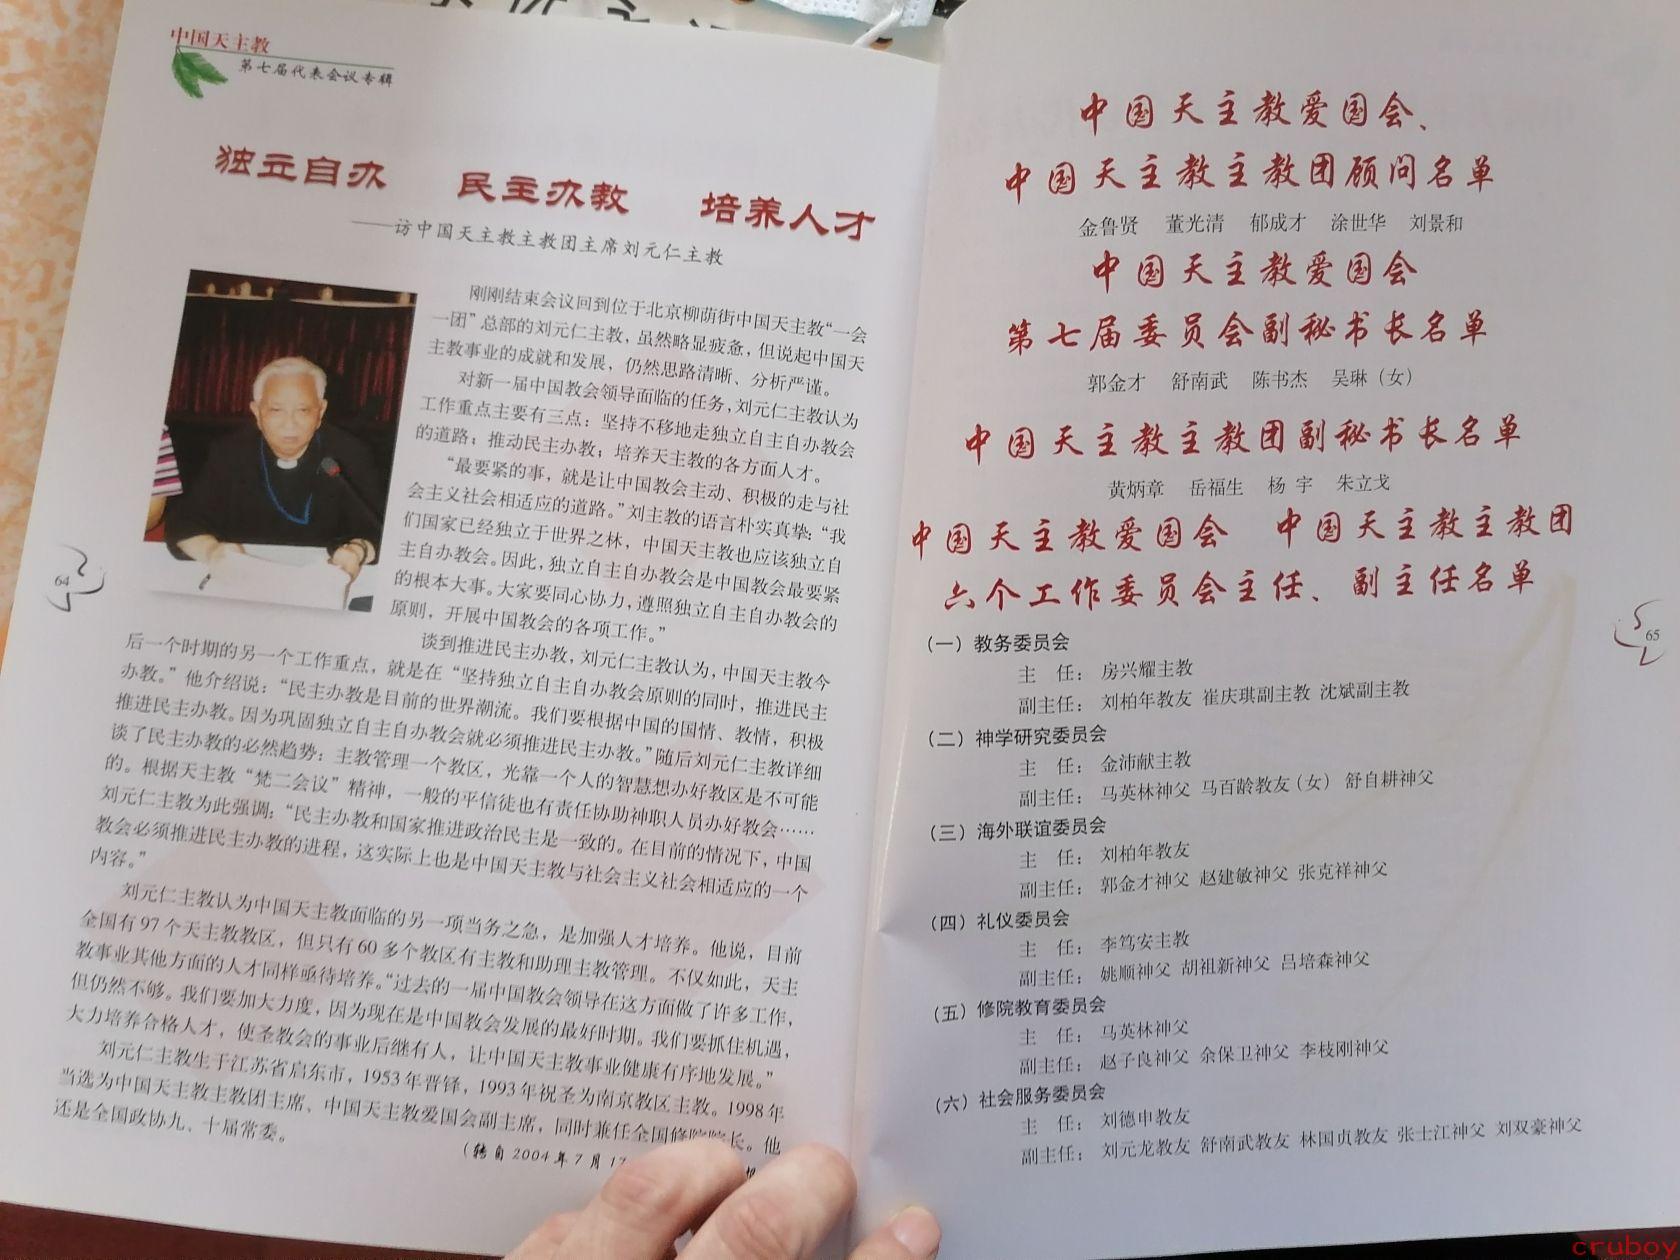 中国天主教
第七届代表会议专辑
独立自办 民主办教 培养人才
——访中国天主教主教团主席刘元仁主教
刚刚结束会议回到位于北京柳荫街中国天主教“一会
一团”总部的刘元仁主教，虽然略显疲惫，但说起中国天
主教事业的成就和发展，仍然思路清晰、分析严谨。
对新一届中国教会领导面临的任务，刘元仁主教认为
工作重点主要有三点：坚持不移地走独立自主自办教会
的道路；推动民主办教；培养天主教的各方面人才。
“最要紧的事，就是让中国教会主动、积极的走与社
会主义社会相适应的道路。”刘主教的语言朴实真挚：“我
们国家已经独立于世界之林，中国天主教也应该独立自
主自办教会。因此，独立自主自办教会是中国教会最要紧
的根本大事。大家要同心协力，遵照独立自主自办教会的
原则，开展中国教会的各项工作。”
谈到推进民主办教，刘元仁主教认为，中国天主教今
后一个时期的另一个工作重点，就是在“坚持独立自主自办教会原则的同时，推进民主
办教。”他介绍说：“民主办教是目前的世界潮流。我们要根据中国的国情、教情，积极
推进民主办教。因为巩固独立自主自办教会就必须推进民主办教。”随后刘元仁主教详细
谈了民主办教的必然趋势：主教管理一个教区，光靠一个人的智慧想办好教区是不可能
的。根据天主教“梵二会议”精神，一般的平信徒也有责任协助神职人员办好教会……
刘元仁主教为此强调：“民主办教和国家推进政治民主是一致的。在目前的情况下，中国
教会必须推进民主办教的进程，这实际上也是中国天主教与社会主义社会相适应的一个
内容。”
刘元仁主教认为中国天主教面临的另一项当务之急，是加强人才培养。他说，目前
全国有97个天主教教区，但只有60多个教区有主教和助理主教管理。不仅如此，天主
教事业其他方面的人才同样亟待培养。“过去的一届中国教会领导在这方面做了许多工作，
但仍然不够。我们要加大力度，因为现在是中国教会发展的最好时期。我们要抓住机遇，
大力培养合格人才，使圣教会的事业后继有人，让中国天主教事业健康有序地发展。”
刘元仁主教生于江苏省启东市，1953年晋铎，1993年祝圣为南京教区主教。1998年
当选为中国天主教主教团主席、中国天主教爱国会副主席，同时兼任全国修院院长。他
还是全国政协九、十届常委。
（转自2004年7月17
64
中国天主教爱国会、
中国天主教主教团顾问名单
金鲁贤 董光清 郁成才 涂世华 刘景和
中国天主教爱国会
第七届委员会副秘书长名单
郭金才 舒南武 陈书杰 吴琳（女）
中国天主教主教团副秘书长名单
黄炳章 岳福生 杨宇 朱立戈
中国天主教爱国会 中国天主教主教团
六个工作委员会主任、副主任名单
（一）教务委员会
主 任：房兴耀主教
副主任：刘柏年教友 崔庆琪副主教 沈斌副主教
（二）神学研究委员会
主 任：金沛献主教
副主任：马英林神父 马百龄教友（女） 舒自耕神父
（三）海外联谊委员会
主 任：刘柏年教友
副主任：郭金才神父 赵建敏神父 张克祥神父
（四）礼仪委员会
主 任：李笃安主教
副主任：姚顺神父 胡祖新神父 吕培森神父
（五）修院教育委员会
主 任：马英林神父
副主任：赵子良神父 余保卫神父 李枝刚神父
（六）社会服务委员会
主 任：刘德申教友
副主任：刘元龙教友 舒南武教友 林国贞教友 张士江神父 刘双豪神父
65
cruboy